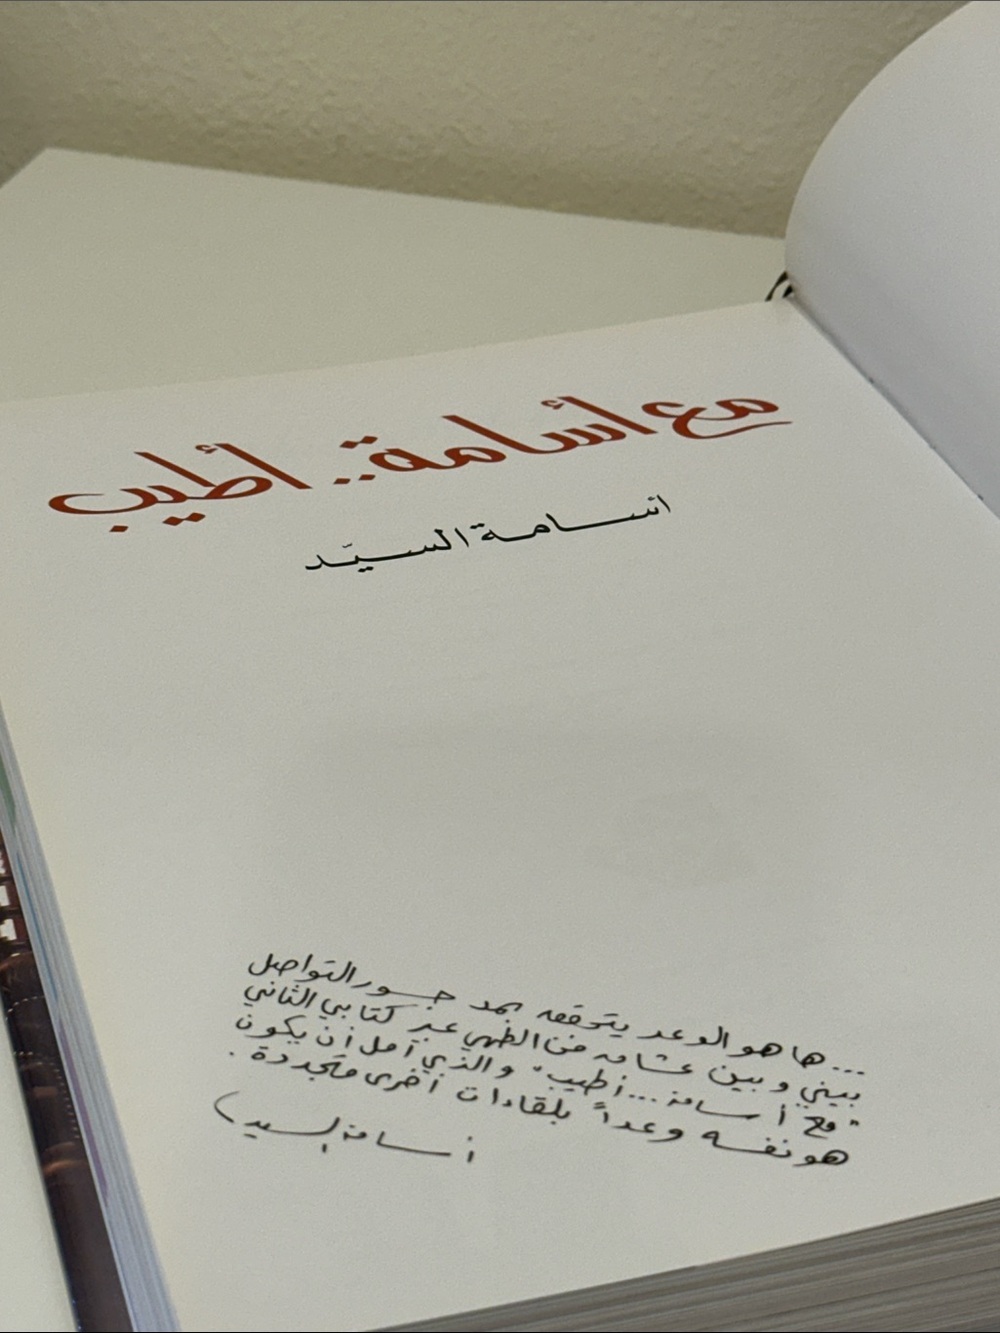 مع أسامة.. أطيب
أسامة السيّد
... ها هو الوعد يتحقق بمد جسور التواصل
بيني وبين عشاق فن الطهي عبر كتابي الثاني
"مع أسامة... أطيب" والذي آمل أن يكون
هو نفسه وعداً بلقاءات أخرى متجددة.
أسامة السيد